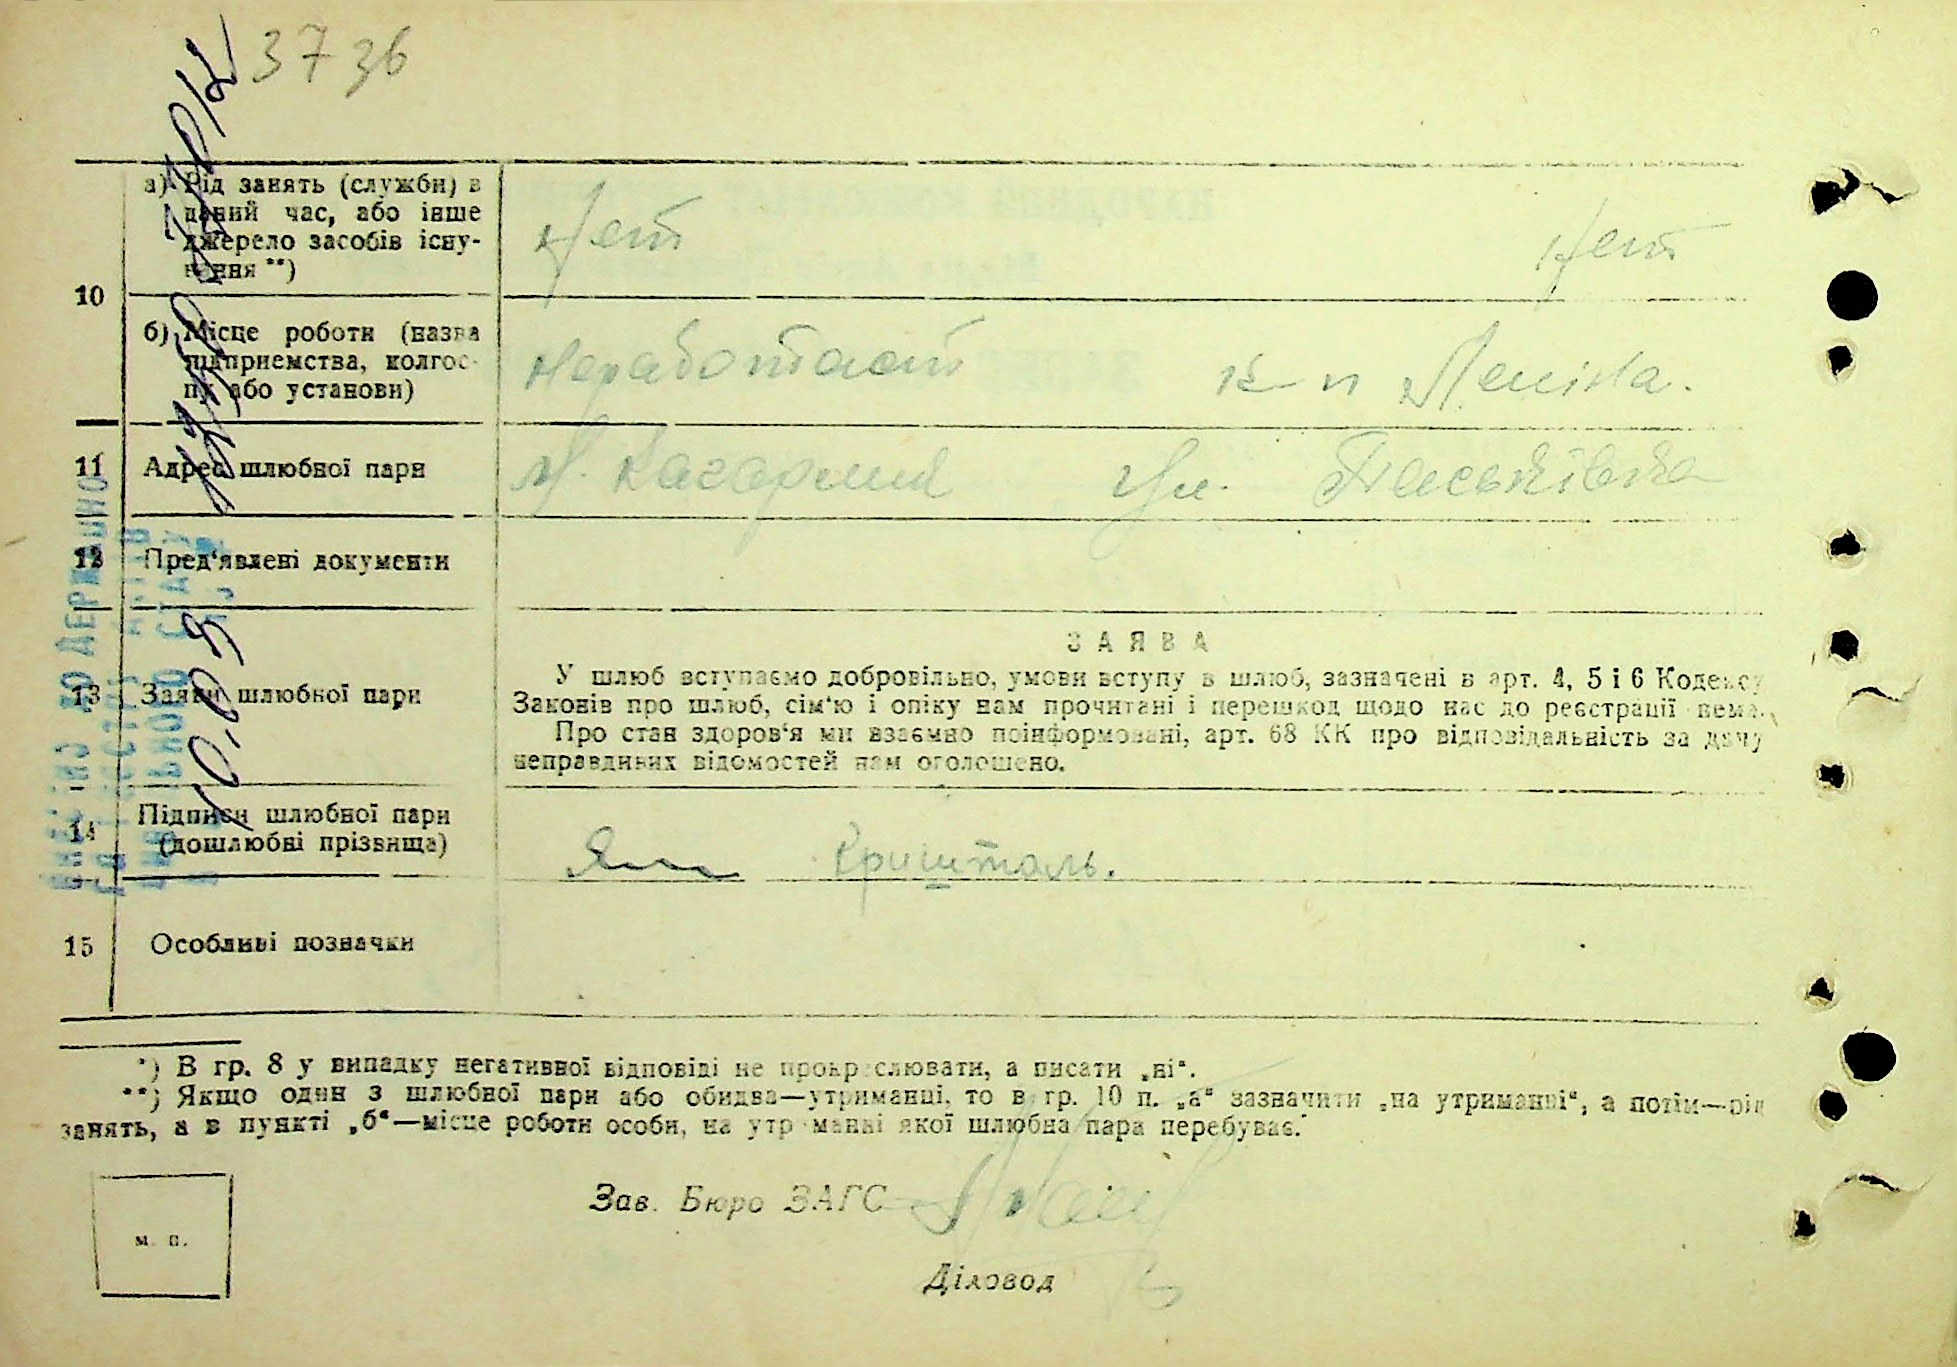 3736
а) Рід занять (служби) в
даний час, або інше
джерело засобів існу-
вання **)
Нет
Нет
10
б) Місце роботи (назва
підприємства, колгос-
пу або установи)
Неработает
к-п Леніна.
11
Адрес шлюбної пари
м. Кагарлик ул. Паськівка
12
Пред'явлені документи
13
Заяви шлюбної пари
ЗАЯВА
У шлюб вступаємо добровільно, умови вступу в шлюб, зазначені в арт. 4, 5 і 6 Кодексу
Законів про шлюб, сім'ю і опіку нам прочитані і перешкод щодо нас до реєстрації нема.
Про стан здоров'я ми взаємно поінформовані, арт. 68 КК про відповідальність за дачу
неправдивих відомостей нам оголошено.
14
Підписи шлюбної пари
(дошлюбні прізвища)
Кришталь.
15
Особливі позначки
*) В гр. 8 у випадку негативної відповіді не прокреслювати, а писати „ні“.
**) Якщо один з шлюбної пари або обидва—утриманці, то в гр. 10 п. „а“ зазначити „на утриманні“, а потім—рід
занять, а в пункті „б“—місце роботи особи, на утриманні якої шлюбна пара перебуває.
Зав. Бюро ЗАГС
м. п.
Діловод